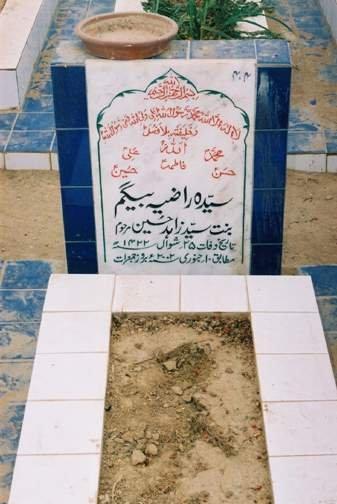 ۴۰۴
بسم الله الرحمن الرحيم
لا اله الا الله محمد رسول الله علی ولی الله وصی رسول الله
وخلیفته بلا فصل
الله
محمد علی
فاطمه
حسن حسین
سیدہ راضیہ بیگم
بنت سید زاہد حسین مرحوم
تاریخ وفات ۲۵ شوال ۱۴۲۲ھ
مطابق ۱۰ جنوری ۲۰۰۲ء بروز جمعرات